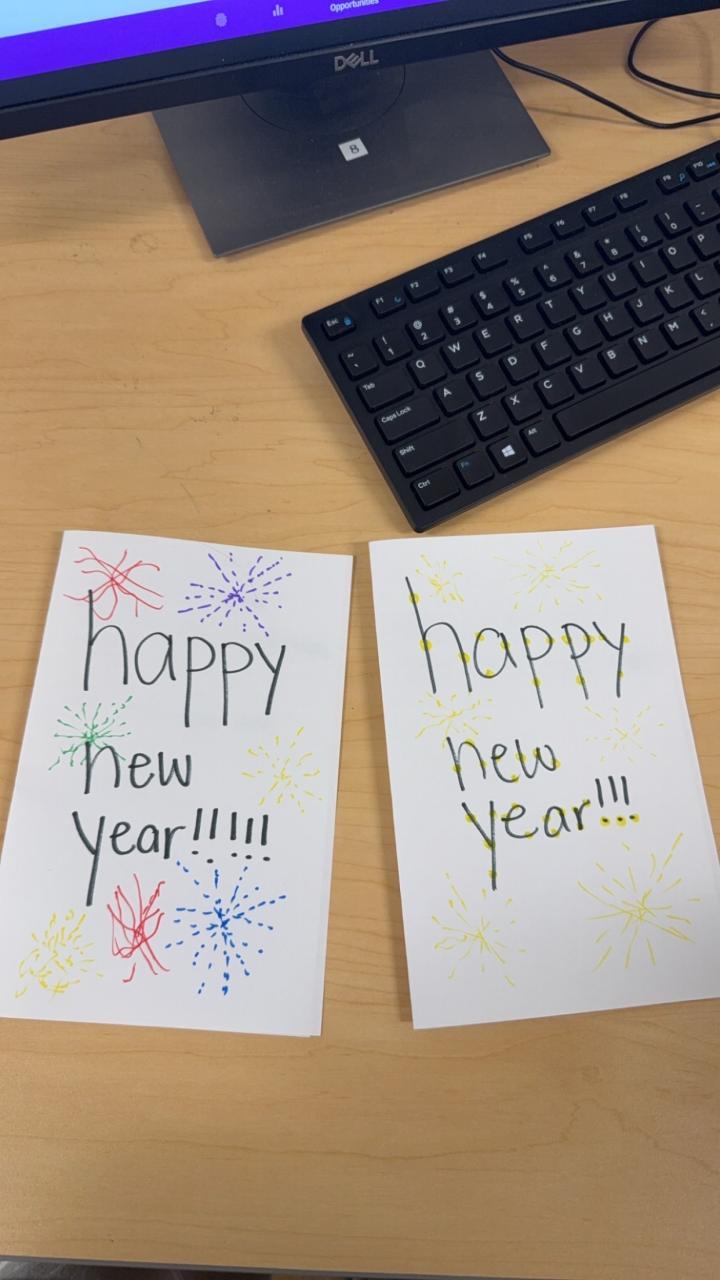 Opportunities
DELL
8
Esc F1 F2 F3 F4 F5 F6 F7 F8 F9 F10
~ ` ! 1 @ 2 # 3 $ 4 % 5 ^ 6 & 7 * 8 ( 9 ) 0 -
Tab Q W E R T Y U I O P
Caps Lock A S D F G H J K L
Shift Z X C V B N M < ,
Ctrl Fn Alt
happy
new
year!!!!!
happy
new
year!!!